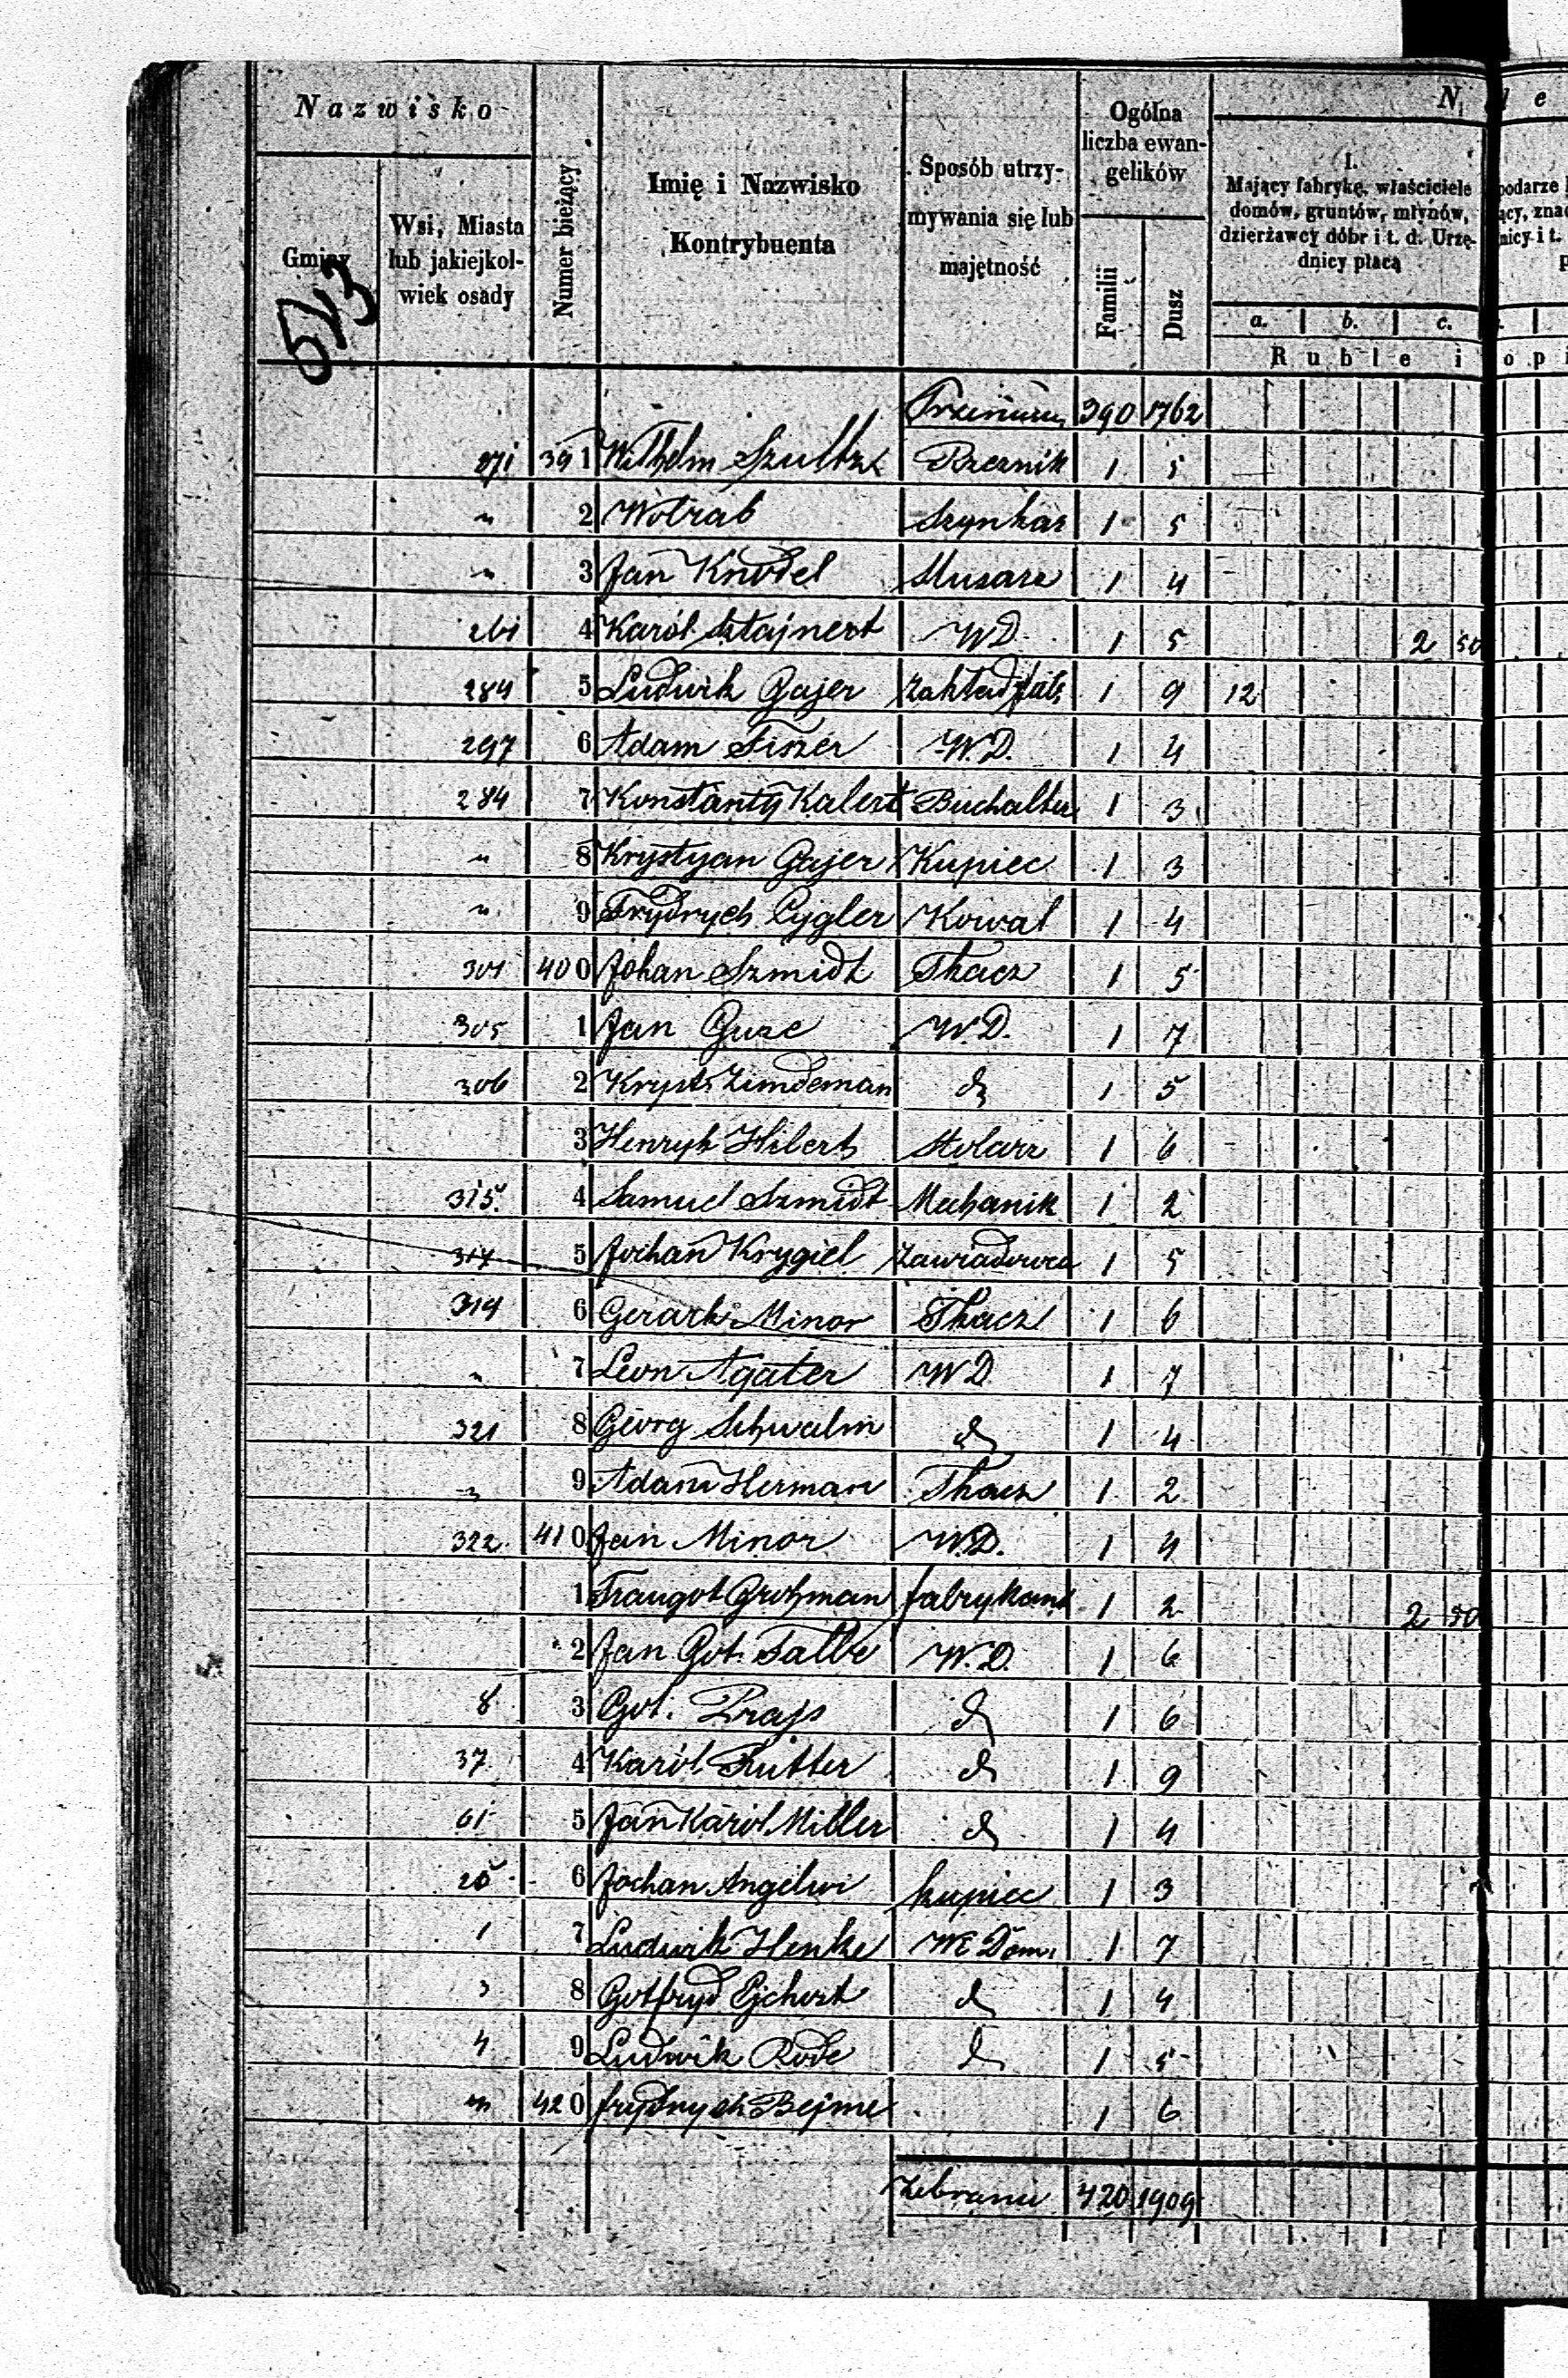 Nazwisko
Gminy
Wsi, Miasta lub jakiejkol- wiek osady
Numer bieżący
Imię i Nazwisko Kontrybuenta
Sposób utrzy- mywania się lub majętność
Ogólna liczba ewan- gelików
Familii
Dusz
N
I.
Mający fabrykę, właściciele domów, gruntów, młynów, dzierżawcy dóbr i t. d. Urzę- dnicy płacą
a. b. c.
Ruble i
513
390 1762
271 391 Wilhelm Szultz Rzeznik 1 5
" 2 Wotrab Szynkar 1 5
" 3 Jan Knodel Slusarz 1 4
261 4 Karól Sztajnert WD 1 5 2 50
284 5 Ludwik Gajer Zakład 1 9 12
297 6 Adam Fiszer W.D. 1 4
284 7 Konstanty Kalert Buchalter 1 3
" 8 Krystyan Gajer Kupiec 1 3
" 9 Frydrych Cygler Kowal 1 4
301 400 Johan Szmidt Tkacz 1 5
305 1 Jan Guze W.D. 1 7
306 2 Kryst. Zimdeman d 1 5
3 Henryk Hilert Stolarz 1 6
315. 4 Samuel Szmidt Mechanik 1 2
317 5 Jochan Krygiel Zawiadowca 1 5
319 6 Minor Tkacz 1 6
" 7 Leon Agater WD 1 7
321 8 Georg Schwalm d 1 4
" 9 Adam Herman Tkacz 1 2
322 410 Jan Minor W.D. 1 4
1 Traugot Grohman fabrykant 1 2 2 50
2 Jan Got. Talbe W.D. 1 6
8 3 Got. Prajs d 1 6
37 4 Karól Rutter d 1 9
61 5 Jan Karol Miller d 1 4
25 6 Jochan kupiec 1 3
1 7 Ludwik Henke Wł Dom. 1 7
3 8 Gotfryd Ejchert d 1 4
4 9 Ludwik Rode d 1 5
" 420 frydrych Bejme 1 6
Zebranie 420 1909